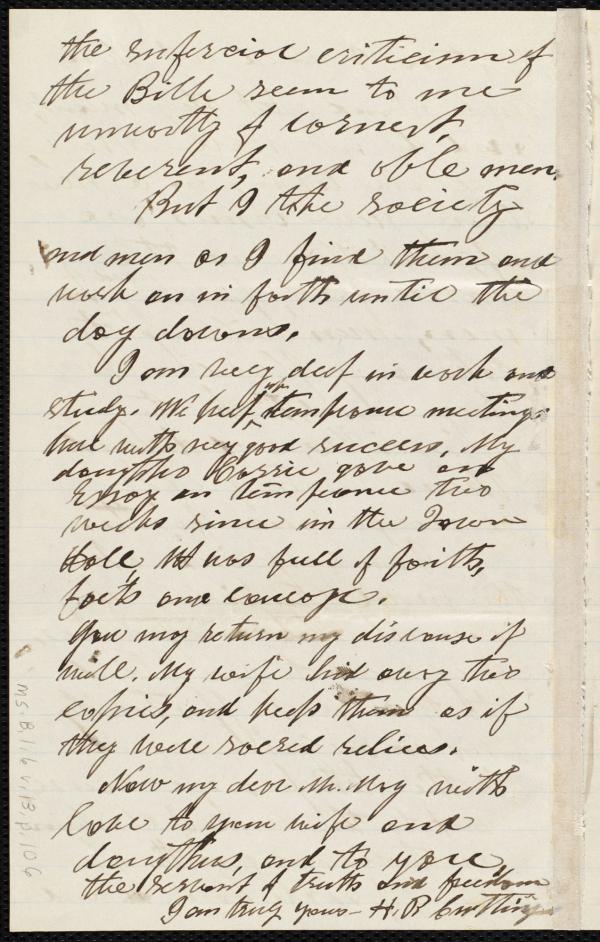 the superficial criticism of
the Bible seem to me
unworthy of earnest,
reverent, and able men.
But I the society
and men as I find them and
work on in faith until the
day dawns.
I am very deep in work and
study. We keep up temperance meetings
here with very good success. My
daughter Carrie gave an
Essay on temperance two
weeks since in the Town
Hall, it was full of faith,
facts and courage.
You may return my discourse if
will. My wife hid away two
copies, and keeps them as if
they were sacred relics.
Now my dear Mr. May with
love to your wife and
daughters, and to you,
the servant of truth and freedom
I am truly yours— H. P. Cutting
MS B.1.6 v.13, p. 106